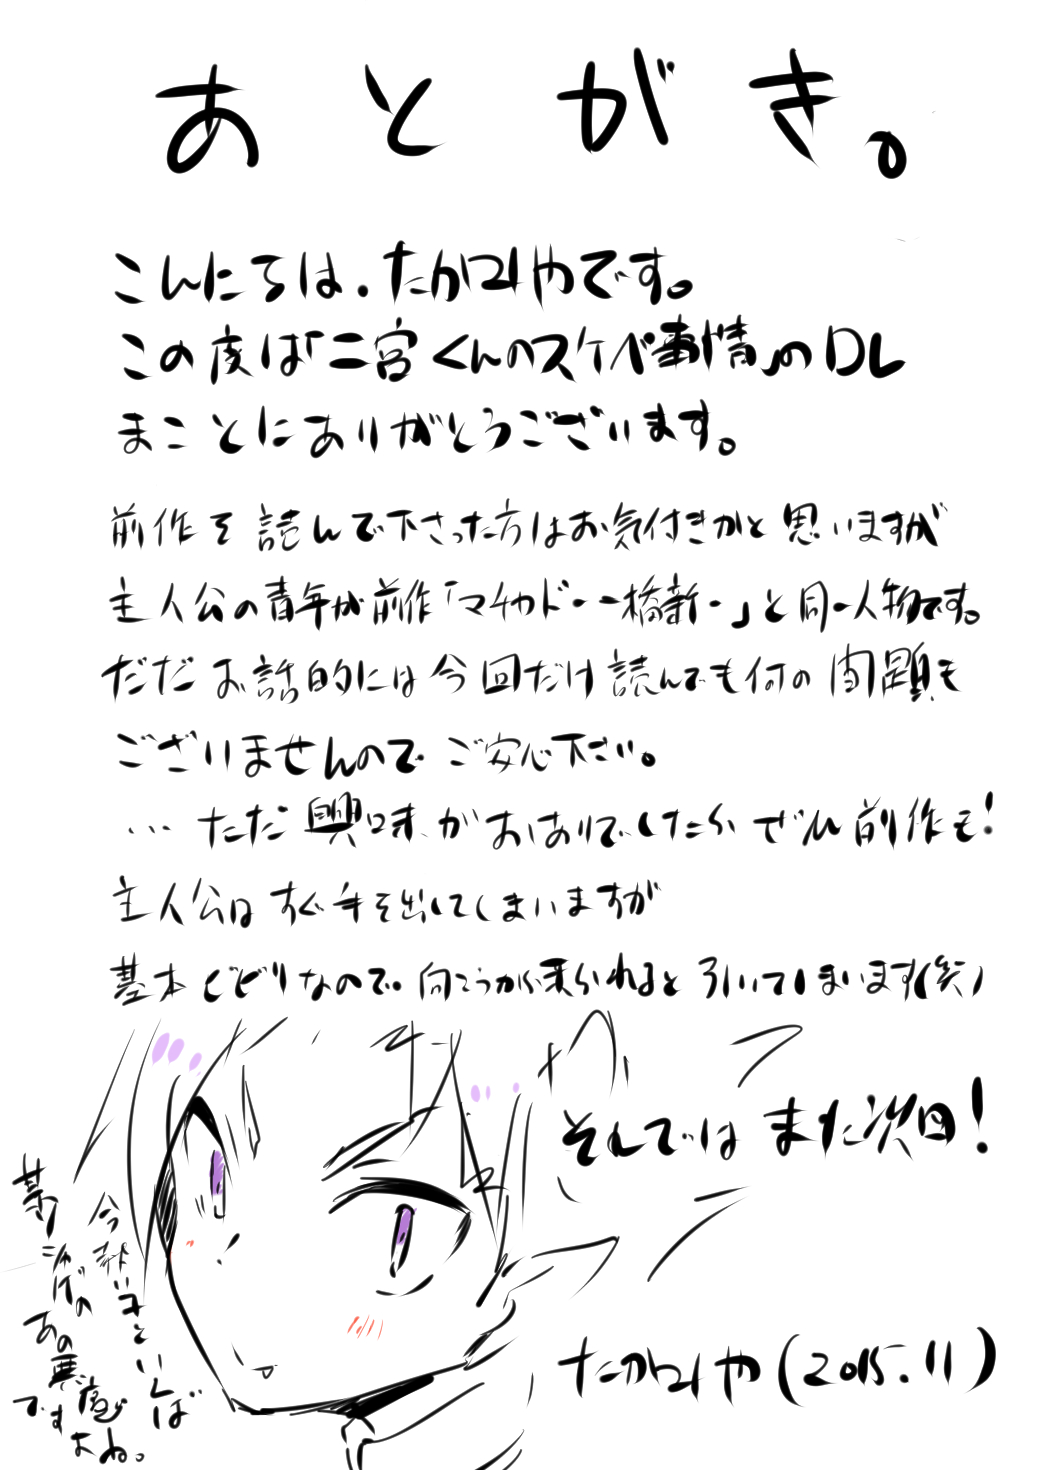 あとがき。
こんにちは.たかコやです。
この度は「二宮くんのスケベ事情」のDL
まことにありがとうございます。
前作を読んで下さった方はお気付きかと思いますが
主人公の青年が前作「マチカドー橋新一」と同一人物です。
だだお話的には今回だけ読んでも何の問題も
ございませんのでご安心下さい。
…ただ興味がおありでしたらぜひ前作も!
主人公はすぐ手を出してしまいますが
基本ビビりなので。向こうから乗られると引いてしまいます(笑)
それではまた次回!
今熱い子といえば
某ジャゲの
あの悪魔
ですよね。
(2015.11)